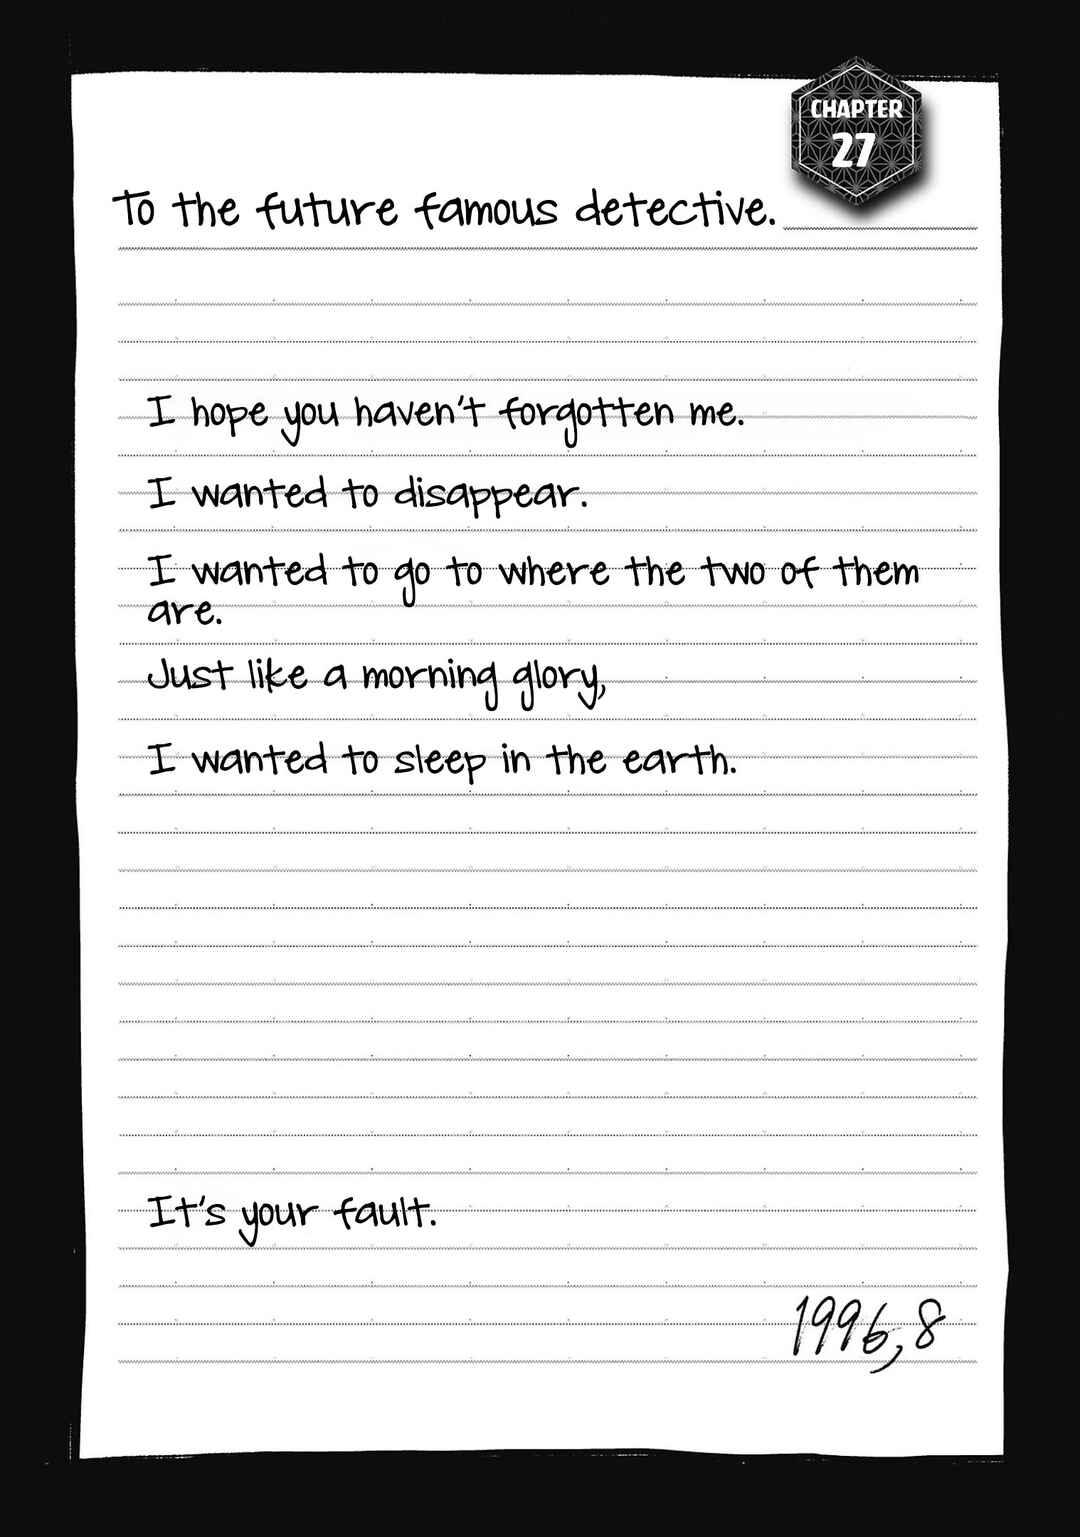 CHAPTER
27
To the future famous detective.
I hope you haven't forgotten me.
I wanted to disappear.
I wanted to go to where the two of them
are.
Just like a morning glory,
I wanted to sleep in the earth.
It's your fault.
1996,8